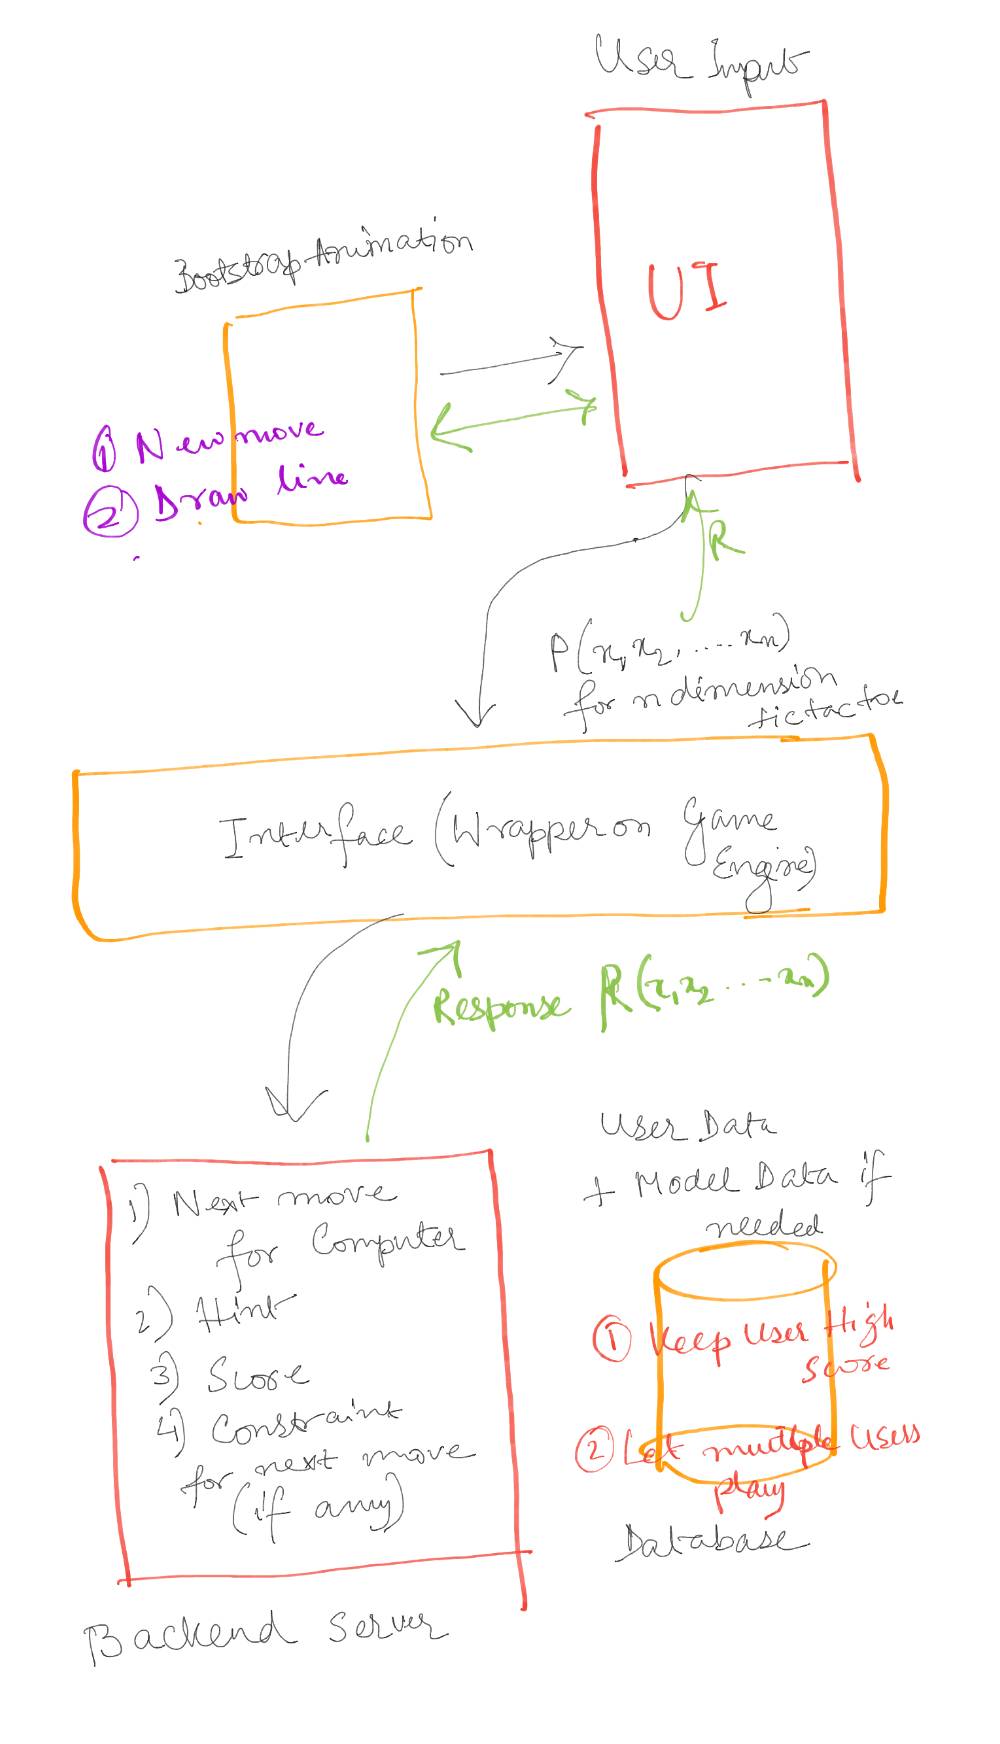 User Input
UI
Bootstrap Animation
① New move
② Draw line
R
P(x₁, x₂, .... xₙ)
for n dimension
tictactoe
Interface (Wrapper on Game
Engine)
Response R(x₁, x₂ ... xₙ)
1) Next move
for Computer
2) Hint
3) Score
4) Constraint
for next move
(if any)
Backend Server
User Data
+ Model Data if
needed
① Keep User High
Score
② Let multiple Users
play
Database